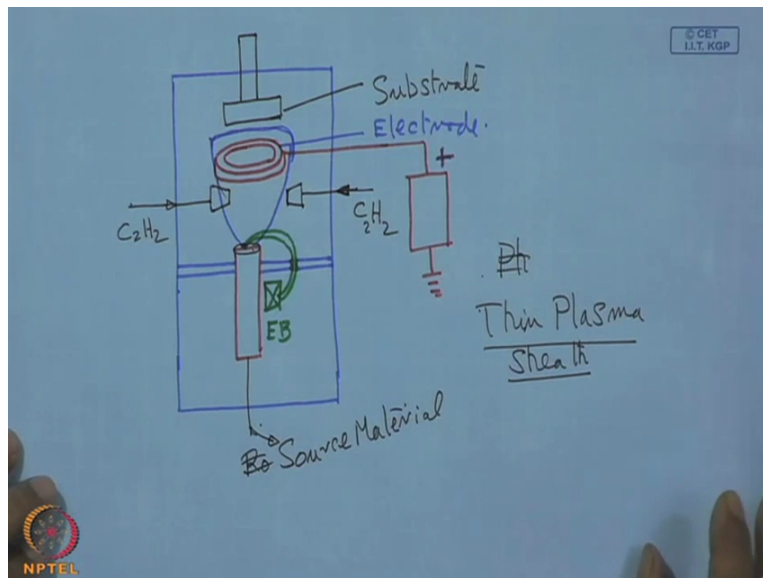 © CET
I.I.T. KGP
Substrate
Electrode.
+
C2H2
C2H2
EB
Thin Plasma
Sheath
Source Material
NPTEL